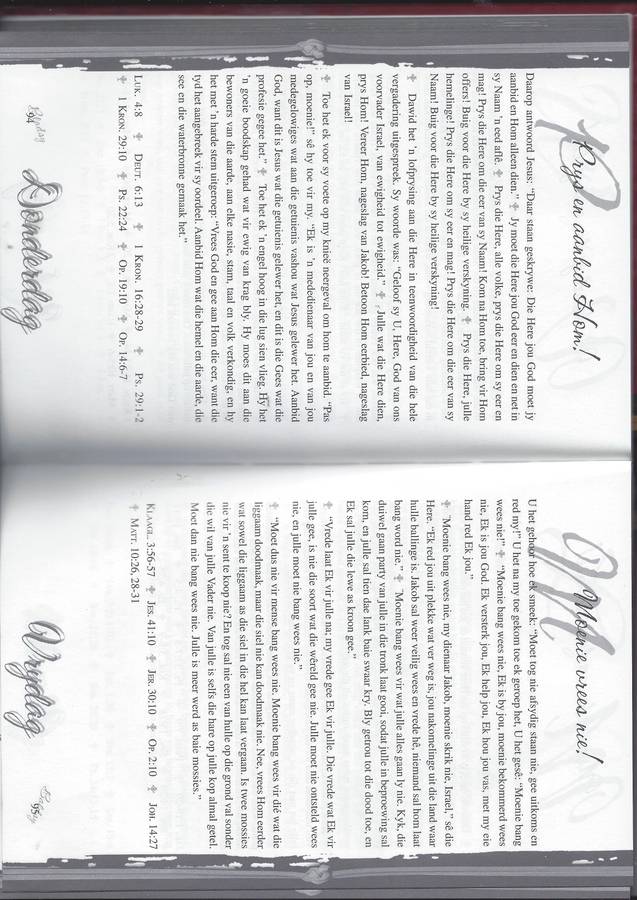 Prys en aanbid Hom!
Daarop antwoord Jesus: "Daar staan geskrywe: Die Here jou God moet jy
aanbid en Hom alleen dien." ✝ Jy moet die Here jou God eer en dien en net in
sy Naam 'n eed aflê. ✝ Prys die Here, alle volke, prys die Here om sy eer en
mag! Prys die Here om die eer van sy Naam! Kom na Hom toe, bring vir Hom
offers! Buig voor die Here by sy heilige verskyning. ✝ Prys die Here, julle
hemelinge! Prys die Here om sy eer en mag! Prys die Here om die eer van sy
Naam! Buig voor die Here by sy heilige verskyning!
✝ Dawid het 'n lofprysing aan die Here in teenwoordigheid van die hele
vergadering uitgespreek. Sy woorde was: "Geloof sy U, Here, God van ons
voorvader Israel, van ewigheid tot ewigheid." ✝ Julle wat die Here dien,
prys Hom! Vereer Hom, nageslag van Jakob! Betoon Hom eerbied, nageslag
van Israel!
✝ Toe het ek voor sy voete op my knieë neergeval om hom te aanbid. "Pas
op, moenie!" sê hy toe vir my. "Ek is 'n mededienaar van jou en van jou
medegelowiges wat aan die getuienis vashou wat Jesus gelewer het. Aanbid
God, want dit is Jesus wat die getuienis gelewer het, en dit is die Gees wat die
profesie gegee het." ✝ Toe het ek 'n engel hoog in die lug sien vlieg. Hy het
'n goeie boodskap gehad wat vir ewig van krag bly. Hy moes dit aan die
bewoners van die aarde, aan elke nasie, stam, taal en volk verkondig, en hy
het met 'n harde stem uitgeroep: "Vrees God en gee aan Hom die eer, want die
tyd het aangebreek vir sy oordeel. Aanbid Hom wat die hemel en die aarde, die
see en die waterbronne gemaak het."
Luk. 4:8 ✝ Deut. 6:13 ✝ 1 Kron. 16:28-29 ✝ Ps. 29:1-2
✝ 1 Kron. 29:10 ✝ Ps. 22:24 ✝ Op. 19:10 ✝ Op. 14:6-7
94
Donderdag
Moenie vrees nie!
U het gehoor hoe ek smeek: "Moet tog nie afsydig staan nie, gee uitkoms en
red my!" U het na my toe gekom toe ek geroep het, U het gesê: "Moenie bang
wees nie!" ✝ "Moenie bang wees nie, Ek is by jou, moenie bekommerd wees
nie, Ek is jou God. Ek versterk jou, Ek help jou, Ek hou jou vas, met my eie
hand red Ek jou."
✝ "Moenie bang wees nie, my dienaar Jakob, moenie skrik nie, Israel," sê die
Here. "Ek red jou uit plekke wat ver weg is, jou nakomelinge uit die land waar
hulle ballinge is. Jakob sal weer veilig wees en vrede hê, niemand sal hom laat
bang word nie." ✝ "Moenie bang wees vir wat julle alles gaan ly nie. Kyk, die
duiwel gaan party van julle in die tronk laat gooi, sodat julle in beproewing sal
kom, en julle sal tien dae lank baie swaar kry. Bly getrou tot die dood toe, en
Ek sal julle die lewe as kroon gee."
✝ "Vrede laat Ek vir julle na; my vrede gee Ek vir julle. Die vrede wat Ek vir
julle gee, is nie die soort wat die wêreld gee nie. Julle moet nie ontsteld wees
nie, en julle moet nie bang wees nie."
✝ "Moet dus nie vir mense bang wees nie. Moenie bang wees vir dié wat die
liggaam doodmaak, maar die siel nie kan doodmaak nie. Nee, vrees Hom eerder
wat sowel die liggaam as die siel in die hel kan laat vergaan. Is twee mossies
nie vir 'n sent te koop nie? En tog sal nie een van hulle op die grond val sonder
die wil van julle Vader nie. Van julle is selfs die hare op julle kop almal getel.
Moet dan nie bang wees nie. Julle is meer werd as baie mossies."
Klaagl. 3:56-57 ✝ Jes. 41:10 ✝ Jer. 30:10 ✝ Op. 2:10 ✝ Joh. 14:27
✝ Matt. 10:26, 28-31
Vrydag
95